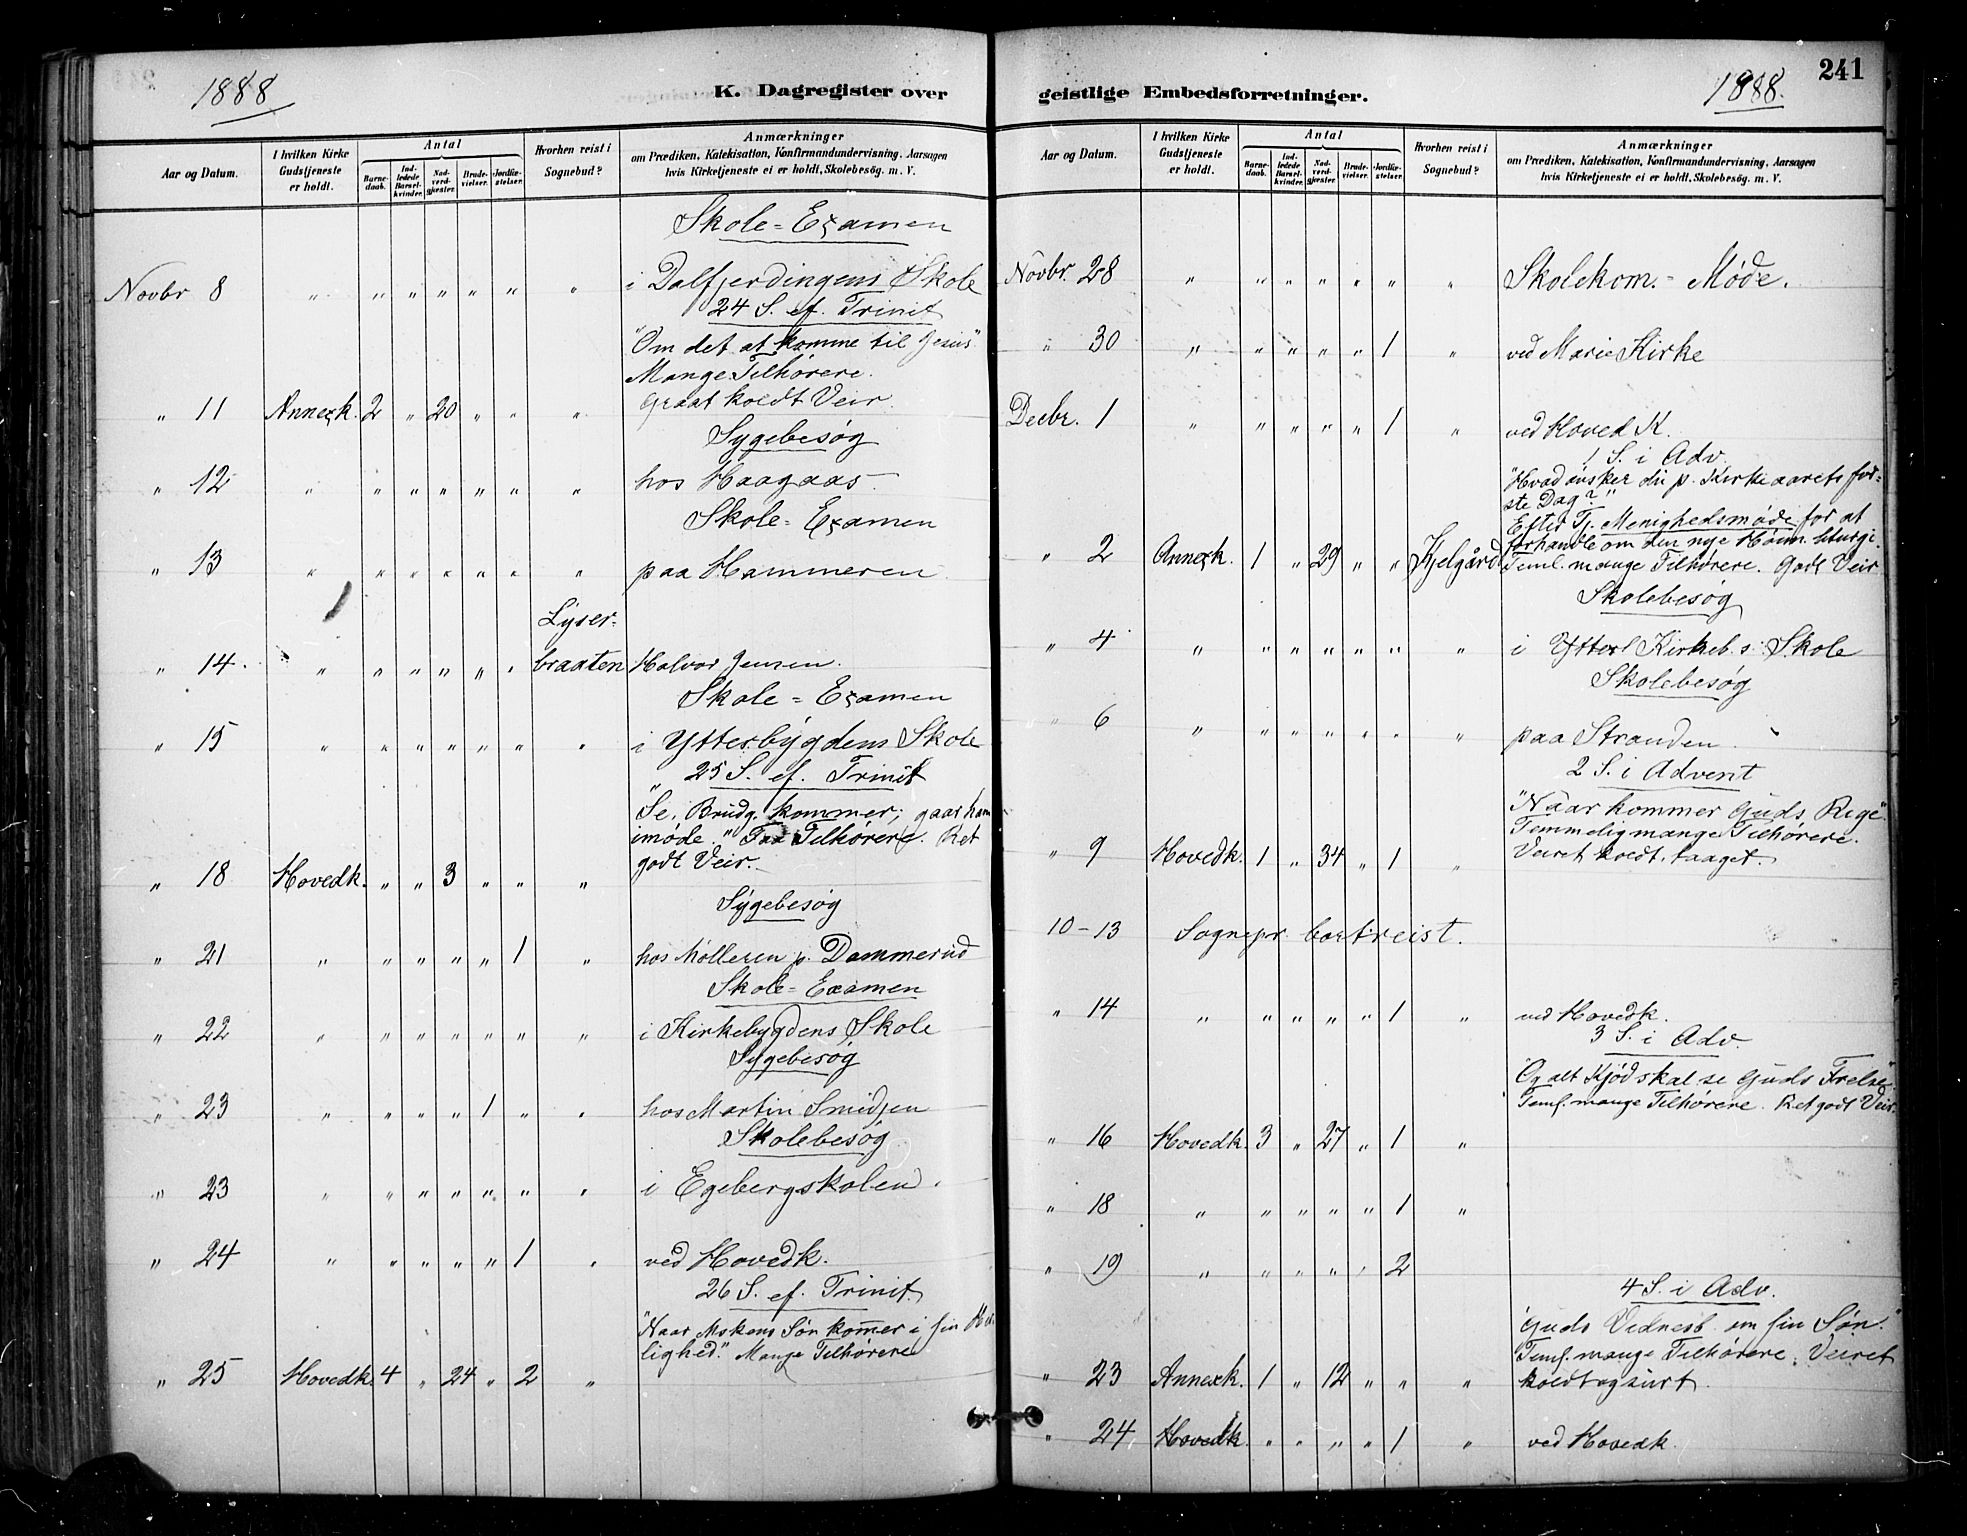 1888
K. Dagregister over
Aar og Datum.
I hvilken Kirke Gudstjeneste er holdt.
Antal
Barnedaab.
Indledede Barselkvinder.
Nadverdgjester.
Brudevielser.
Jordfæstelser.
Hvorhen reist i Sognebud?
Anmærkninger
om Prædiken, Katekisation, Konfirmandundervisning, Aarsagen
hvis Kirketjeneste ei er holdt, Skolebesög. m. V.
Skole=Examen
Novbr 8 " " " " " " " i Dalfjerdingens Skole
24 S. ef. Trinit
"Om det at komme til Jesus"
Mange Tilhørere.
graat koldt Veir.
" 11 Annexk. 2 " 20 " " "
Sygebesøg
" 12 " " " " " " " hos Haagaas
Skole=Examen
" 13 " " " " " " " paa Hammeren
" 14. " " " " " " Lyserbraaten Halvor Jensen.
Skole=Examen
" 15 " " " " " " " i Ytterbygdens Skole
25 S. ef. Trinit
"Se, Brudg. kommer; gaar ham
imøde." Faa Tilhørere. Ret
godt Veir.
" 18 Hovedk. " " 3 " " "
Sygebesøg
" 21 " " " " " 1 " hos Mølleren p. Dammerud
Skole=Examen
" 22 " " " " " " " i Kirkebygdens Skole
Sygebesøg
" 23 " " " " 1 " " hos Martin Smedjen
Skolebesøg
" 23 " " " " " " " i Egebergskolen.
" 24 " " " " " 1 " ved Hovedk.
26 S. ef. Trinit.
"Naar Mskens Søn kommer i sin Her
lighed." Mange Tilhørere
" 25 Hovedk. 4 " 24 " 2 "
geistlige Embedsforretninger.
1888.
241
Aar og Datum.
I hvilken Kirke Gudstjeneste er holdt.
Antal
Barnedaab.
Indledede Barselkvinder.
Nadverdgjester.
Brudevielser.
Jordfæstelser.
Hvorhen reist i Sognebud?
Anmærkninger
om Prædiken, Katekisation, Konfirmandundervisning, Aarsagen
hvis Kirketjeneste ei er holdt, Skolebesög. m. V.
Novbr. 28 " " " " " " " Skolekom.=Møde.
" 30 " " " " " 1 " ved Marie Kirke
Decbr. 1 " " " " " 1 " ved Hoved K.
1 S. i Adv.
"Hvad ønsker du p. Kirkeaarets før=
ste Dag?"
Efter Tj. Menighedsmøde for at
forhandle om den nye liturgi.
Teml. mange Tilhørere. Godt Veir
" 2 Annexk. 1 " 29 " " Kjelgård
Skolebesøg
" 4 " " " " " " " i Ytterl Kirkeb.s Skole
Skolebesøg
" 6 " " " " " " " paa Stranden.
2 S. i Advent
"Naar kommer Guds Rige"
Temmelig mange Tilhørere.
Veiret koldt, taaget.
" 9 Hovedk. 1 " 34 " 1 "
10-13 Sognepr. bortreist.
" 14 " " " " " 1 " ved Hovedk.
3 S. i Adv.
"Og alt Kjød skal se Guds Frelse"
Teml. mange Tilhørere. Ret godt Veir.
" 16 Hovedk. 3 " 27 " 1 "
" 18 " " " " " 1 "
" 19 " " " " " 2
4 S. i Adv.
"Guds Vidnesb om sin Søn."
Teml. mange Tilhørere. Veiret
koldt og surt.
" 23 Annexk. 1 " 12 " " "
" 24 Hovedk. " " " " 1 " ved Hovedk.